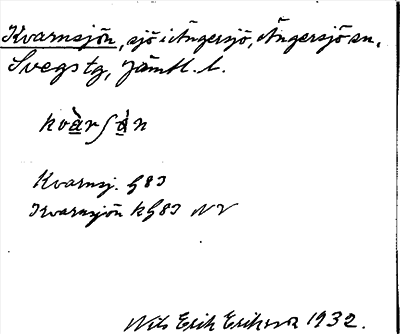 Kvarnsjön, sjö i Ängersjö, Ängersjö sn,
Svegs tg, Jämtl. l.
kvàrʃán
Kvarnsj. G83
Kvarnsjön kG83 NV
Nils Erik Eriksson 1932.